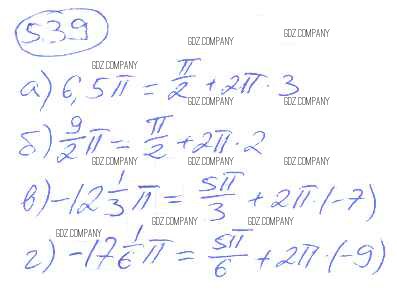 539
GDZ.COMPANY GDZ.COMPANY
GDZ.COMPANY
а) 6,5π = π/2 + 2π · 3
GDZ.COMPANY GDZ.COMPANY
б) 9/2 π = π/2 + 2π · 2
GDZ.COMPANY GDZ.COMPANY GDZ.COMPANY
в) -12 1/3 π = 5π/3 + 2π · (-7)
GDZ.COMPANY GDZ.COMPANY GDZ.COMPANY
г) -17 1/6 π = 5π/6 + 2π · (-9)